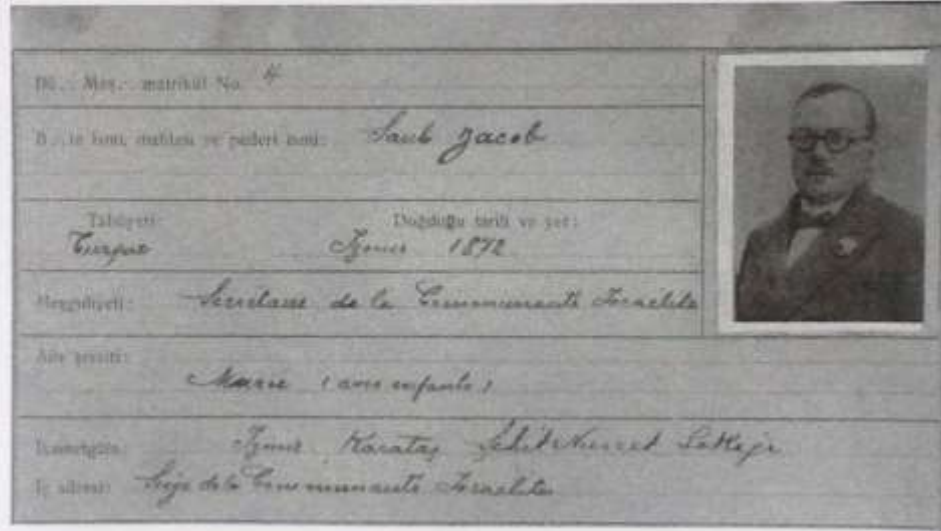 matrikül No. 4
ismi, mahlası ve pederi ismi: Saub Jacob
Tabiiyeti: Doğduğu tarih ve yer:
Turque Izmir 1872
Meşguliyeti: Secrétaire de la Communauté Israélite
Aile
Marié (avec enfants)
İkametgâhı: Izmir Karataş Şehit Nusret Sokağı
İş adresi: Siège de la Communauté Israélite